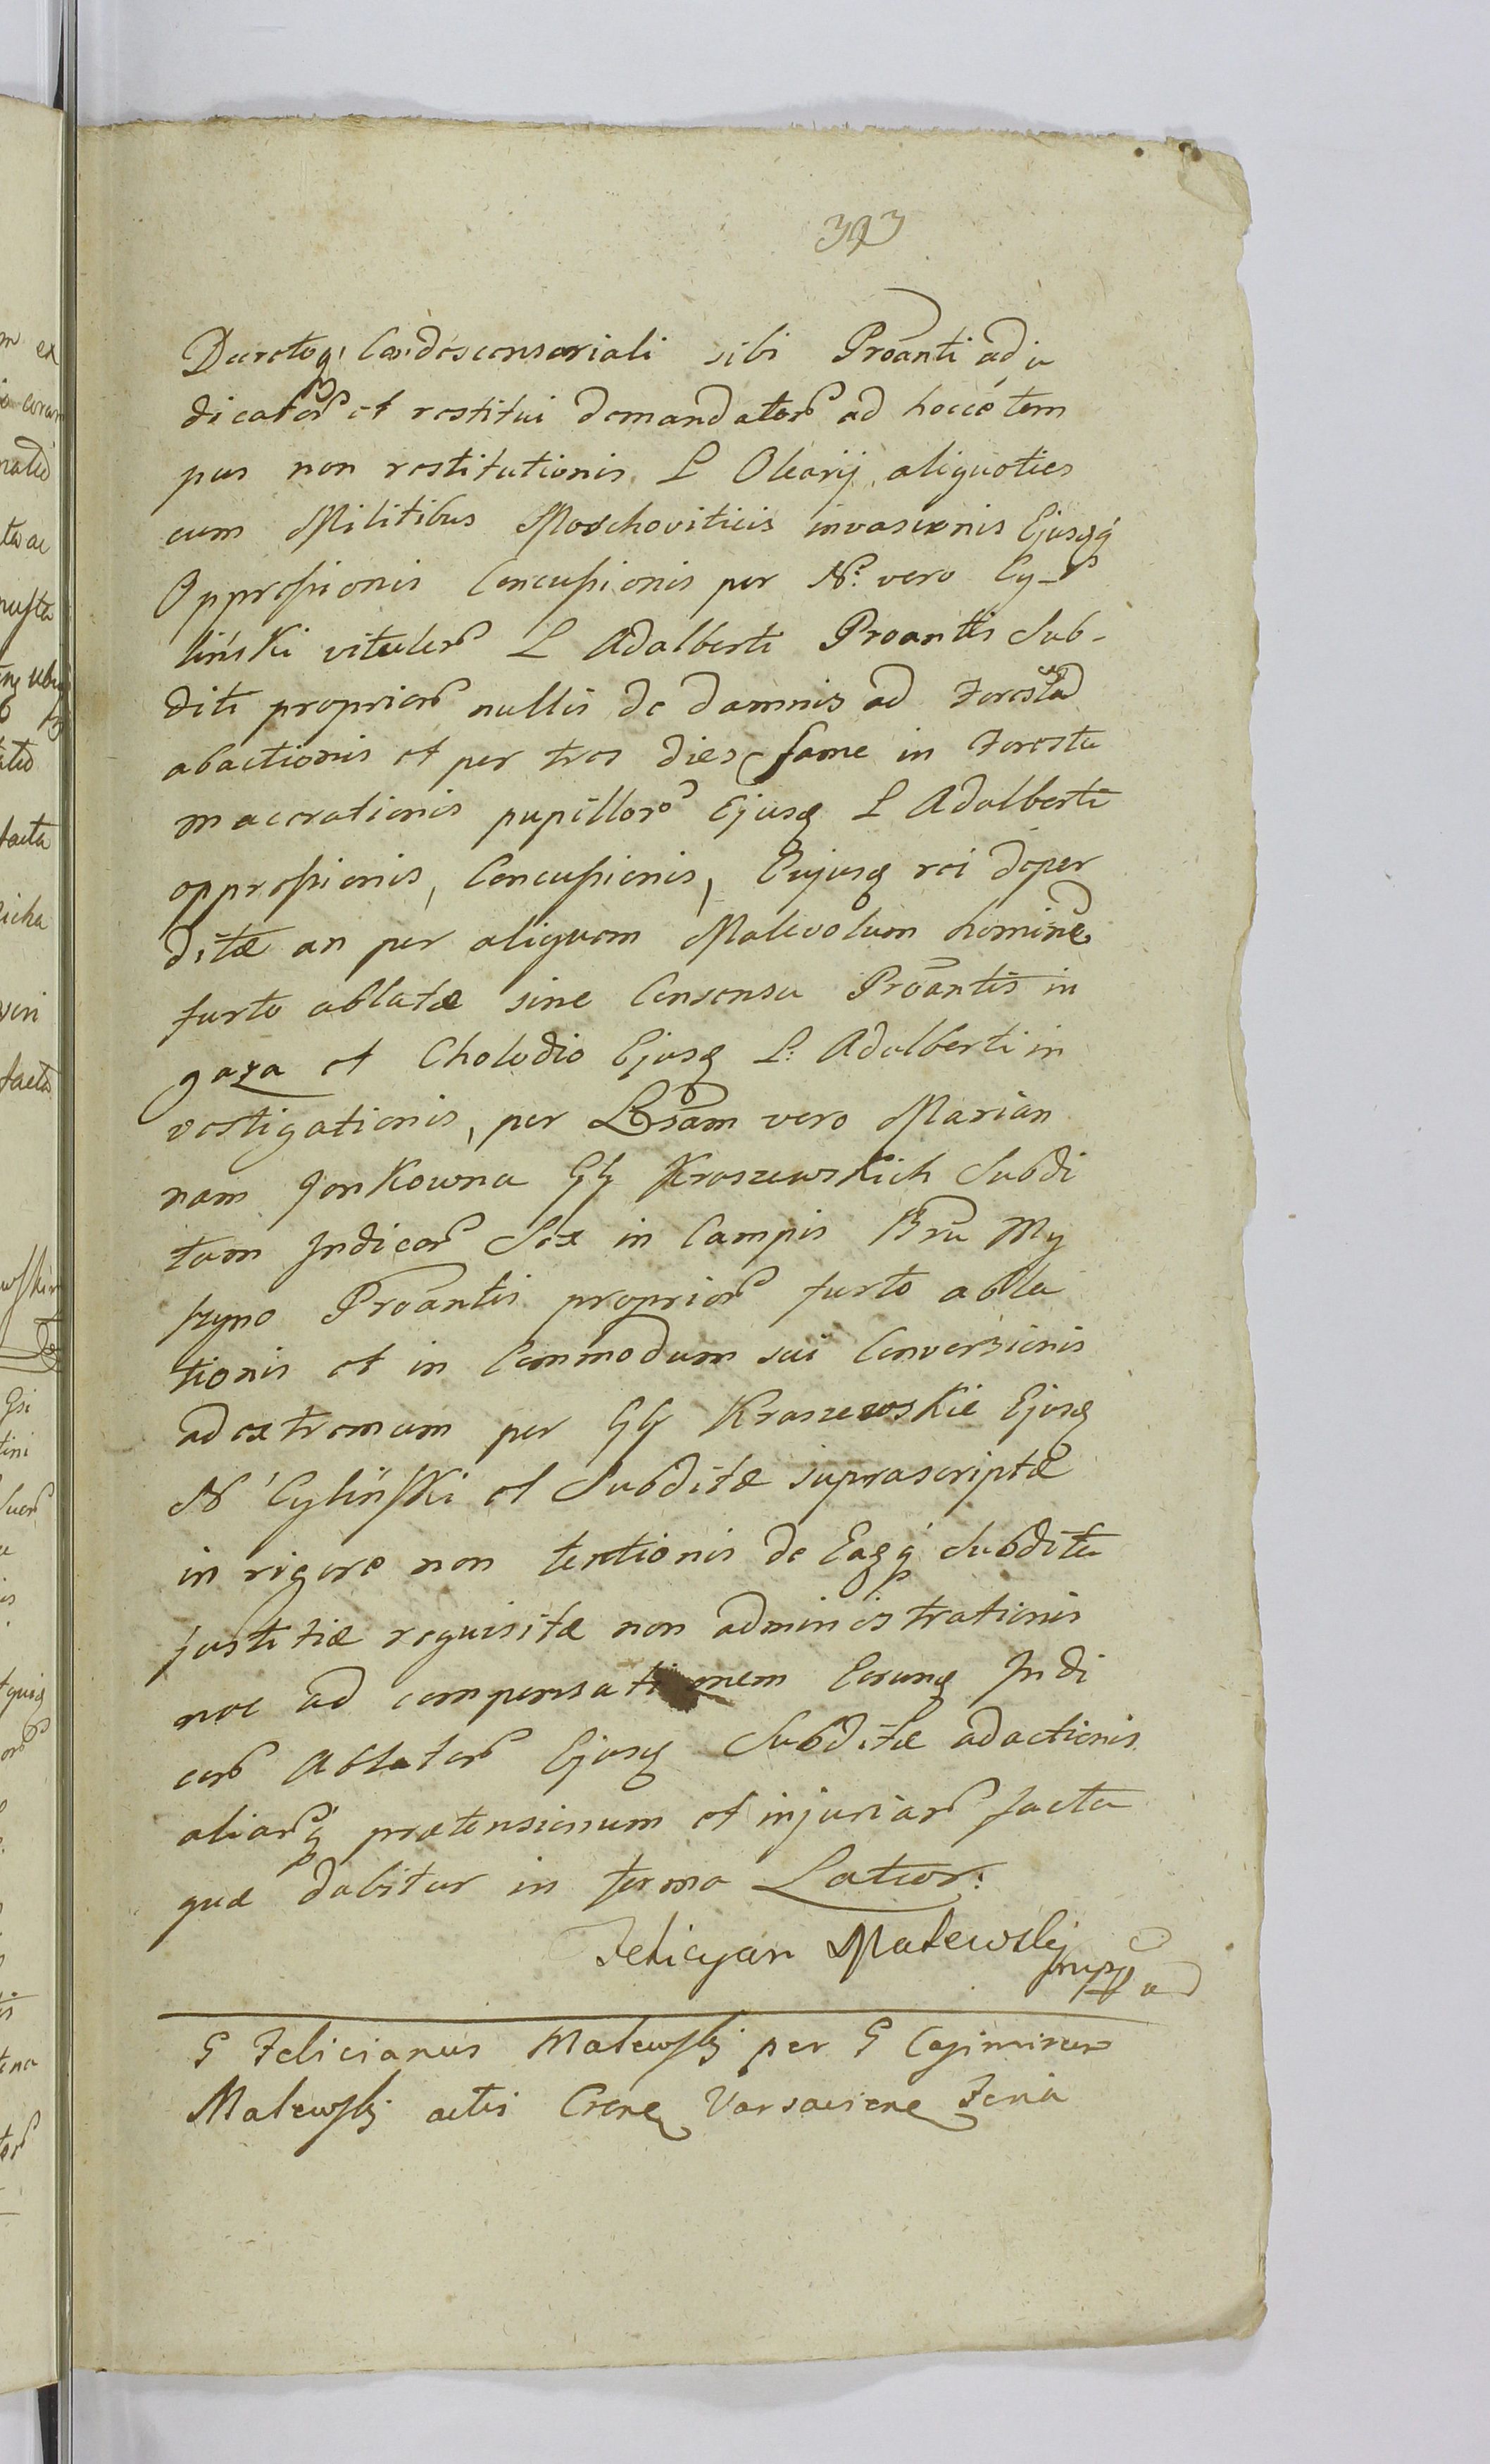 393
Decretoq; Condescensoriali sibi Proanti adju
dicator et restitui demandator ad hocce tem
pus non restitutionis L Olearij aliquoties
cum Militibus Moschoviticis invasionis Ejusqq
Oppressionis Concussionis per N: vero Cy-
liński vitulor L Adalberti Proantis Sub-
diti proprior nullis de damnis ad Foresta
abactionis et per tres dies fame in Foresta
macerationis pupillor Ejusq L Adalberti
oppressionis, Concussionis, Cujusq rei deper
ditæ an per aliquem Malevolum homine
furto ablatæ sine Consensu Proantis in
gaza et Cholodio Ejusq L: Adalberti in
vestigationis, per Lbsam vero Marian
nam Jonkowna GG Kraszewskich Subdi
tam Indicor Sex in Campis Bru My
szyno Proantis proprior furto abla
tionis et in Commodum sui Conversionis
ad extremum per GG Kraszewskie Ejusq
N Cyliński et Subditæ suprascriptæ
in rigore non tentionis de Eaqq Subdita
justitiæ requisitæ non administrationis
nec ad compensationem Eorunq Indi
cor Ablator Ejusq Subditæ adactionis
aliarq prætensionum et injuriar facta
quæ dabitur in termo Latior:
Felicyan Malewsky
mpp
G Felicianus Malewsky per G Casimirum
Malewsky actis Crens Varsaviens Feria